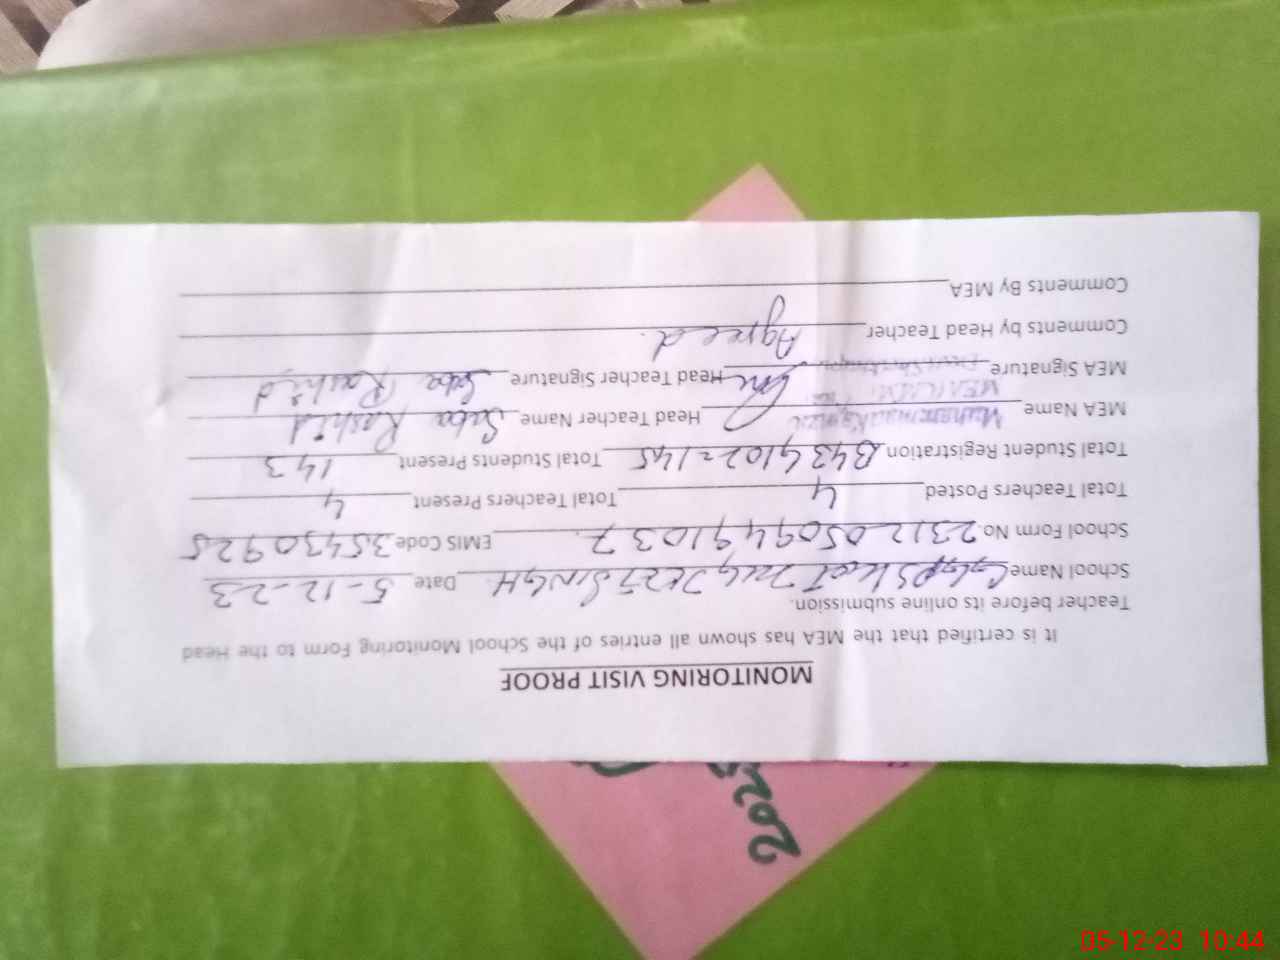 MONITORING VISIT PROOF
It is certified that the MEA has shown all entries of the School Monitoring Form to the Head
Teacher before its online submission.
School Name SINGH Date 5-12-23
School Form No. 23120509491037. EMIS Code 35430925
Total Teachers Posted 4 Total Teachers Present 4
Total Student Registration B43G102=145 Total Students Present 143
MEA Name Muhammad Head Teacher Name Saba Rashid
MEA Signature Head Teacher Signature Saba Rashid
Comments by Head Teacher Agreed.
Comments By MEA
05-12-23 10:44